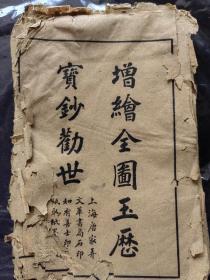 增繪全圖玉歷
寶鈔勸世
上海唐家弄
文華書局石印
如有善士印